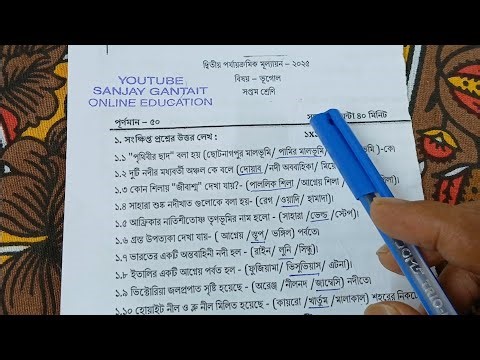 দ্বিতীয় পর্যায়ক্রমিক মূল্যায়ন – ২০২৫
YOUTUBE
SANJAY GANTAIT
ONLINE EDUCATION
বিষয় – ভূগোল
সপ্তম শ্রেণি
পূর্ণমান – ৫০ ৪০ মিনিট
১. সংক্ষিপ্ত প্রশ্নের উত্তর লেখ :
১.১ "পৃথিবীর ছাদ" বলা হয় (ছোটনাগপুর মালভূমি/ পামির মালভূমি/ )-কে।
১.২ দুটি নদীর মধ্যবর্তী অঞ্চল কে বলে (দোয়াব /নদী অববাহিকা/
১.৩ কোন শিলায় "জীবাশ্ম" দেখা যায়?- (পাললিক শিলা /আগ্নেয় শিলা
১.৪ সাহারা শুষ্ক নদীখাত গুলোকে বলা হয়- (রেগ /ওয়াদি/ হামাদা)।
১.৫ আফ্রিকার নাতিশীতোষ্ণ তৃণভূমির নাম হলো - (সাহারা /ভেল্ড /স্টেপ)।
১.৬ গ্রস্ত উপত্যকা দেখা যায়- (আগ্নেয় /স্তূপ/ ভঙ্গিল) পর্বতে।
১.৭ ভারতের একটি অন্তবাহিনী নদী হল - (রাইন/ লুনি /সিন্ধু)।
১.৮ ইতালির একটি আগ্নেয় পর্বত হল - (ফুজিয়ামা/ ভিসুভিয়াস/ এটনা)।
১.৯ ভিক্টোরিয়া জলপ্রপাত সৃষ্টি হয়েছে - (অরেঞ্জ /নীলনদ /জাম্বেসি) নদীতে।
১.১০ হোয়াইট নীল ও ব্লু নীল মিলিত হয়েছে - (কায়রো /খার্তুম /মালাকাল) শহরের নিকটে